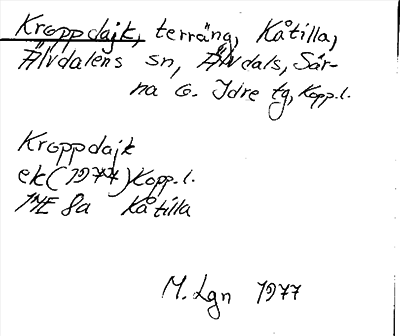 Kroppdajk, terräng, Kåtilla,
Älvdalens sn, Älvdals, Sär-
na o. Idre tg, Kopp.l.
Kroppdajk
ek (1977) Kopp.l.
14E 8a Kåtilla
M. Lgn 1977